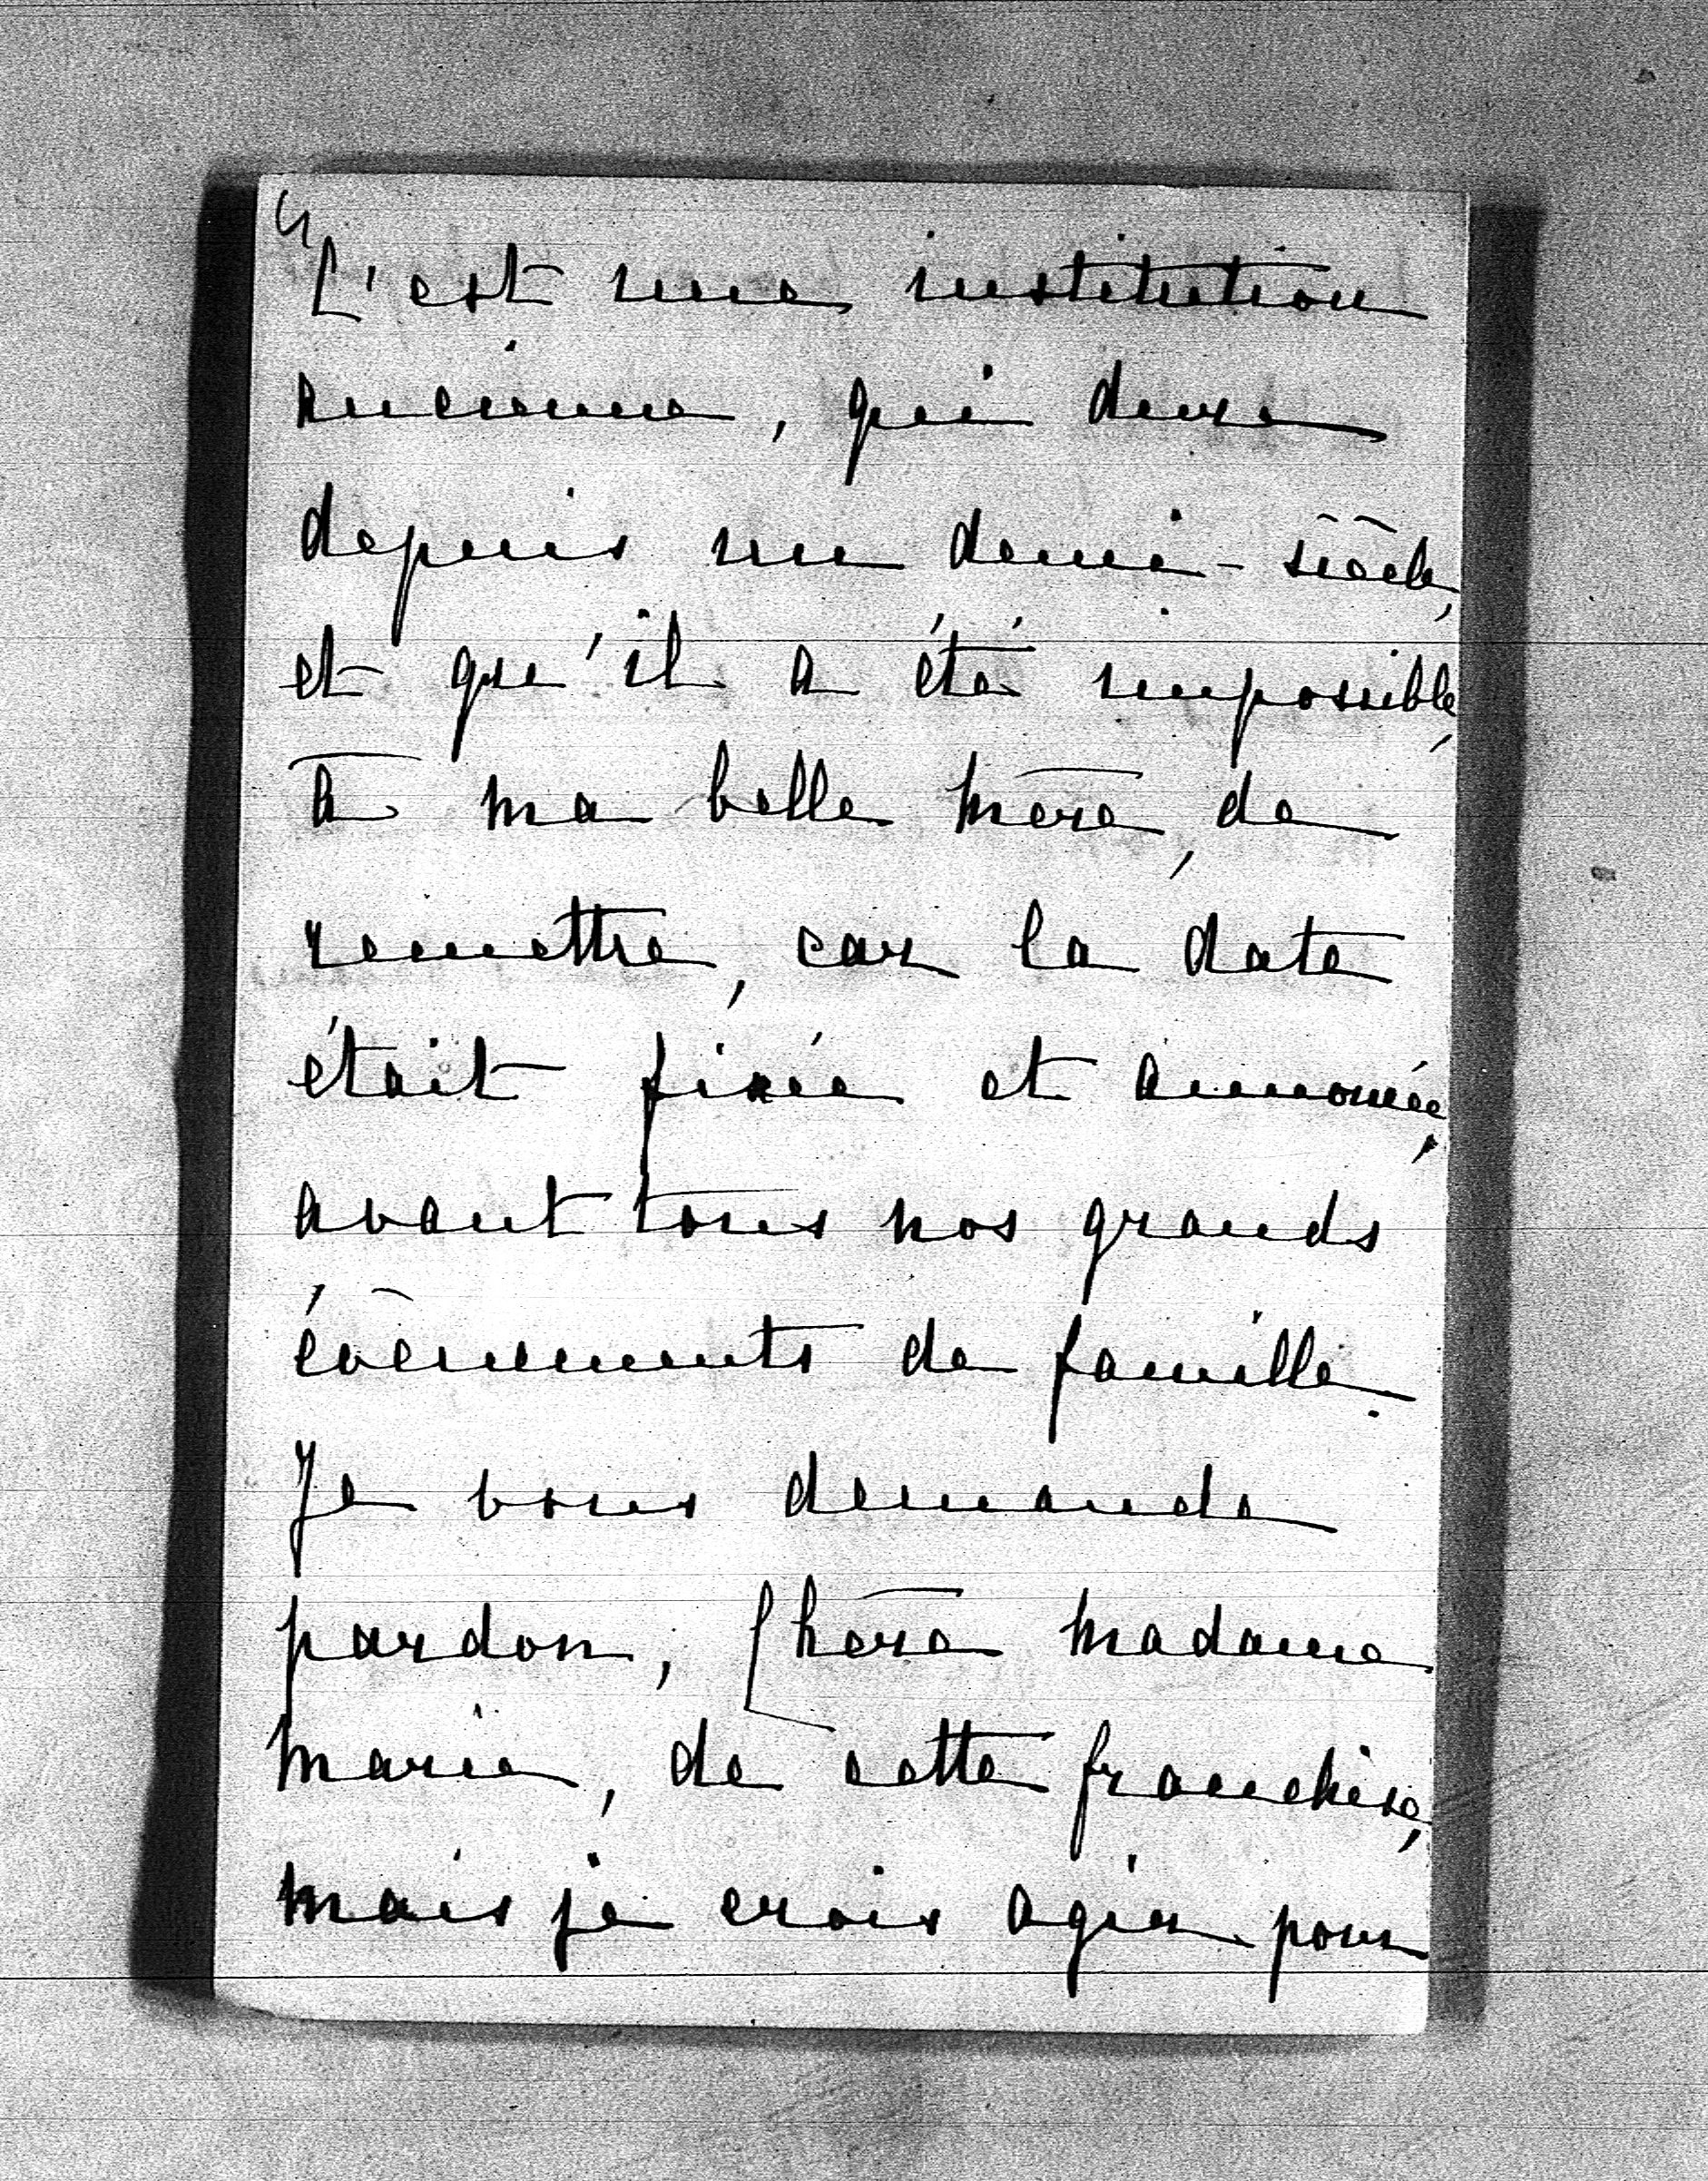 C'est une institution
ancienne, qui dure
depuis un demi-siècle,
et qu'il a été impossible,
à ma belle mère, de
remettre, car la date
était fixée et annoncée,
avant tous nos grands
évènements de famille.
Je vous demande
pardon, Chère Madame
Marie, de cette franchise,
mais je crois agir pour